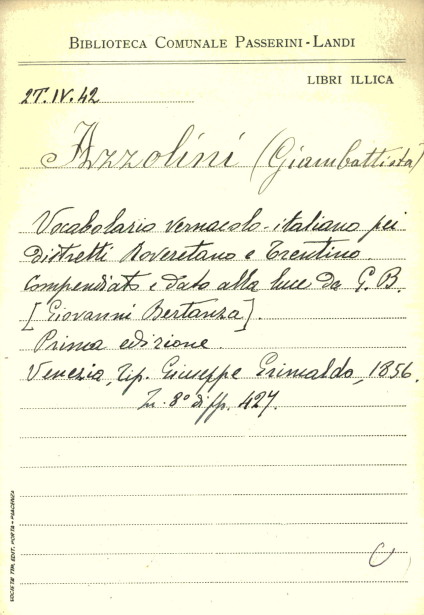 BIBLIOTECA COMUNALE PASSERINI-LANDI
LIBRI ILLICA
2T.IV.42
Azzolini (Giambattista)
Vocabolario vernacolo-italiano pei
distretti Roveretano e Trentino.
Compendiato e dato alla luce da G.B.
[Giovanni Bertanza].
Prima edizione.
Venezia, Tip. Giuseppe Grimaldo, 1856.
In 8° di pp. 427.
SOCIETÀ TIP. EDIT. PORTA - PIACENZA